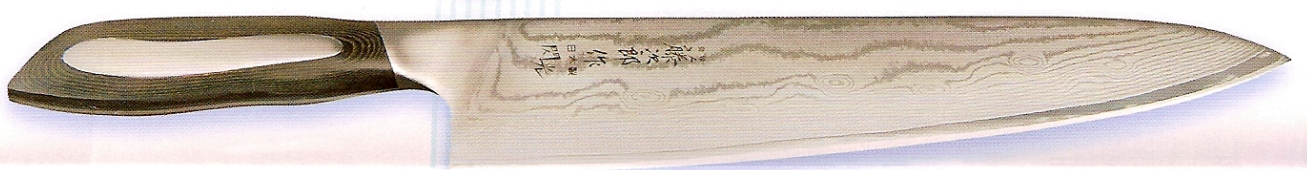 藤次郎作
日本製
閃光